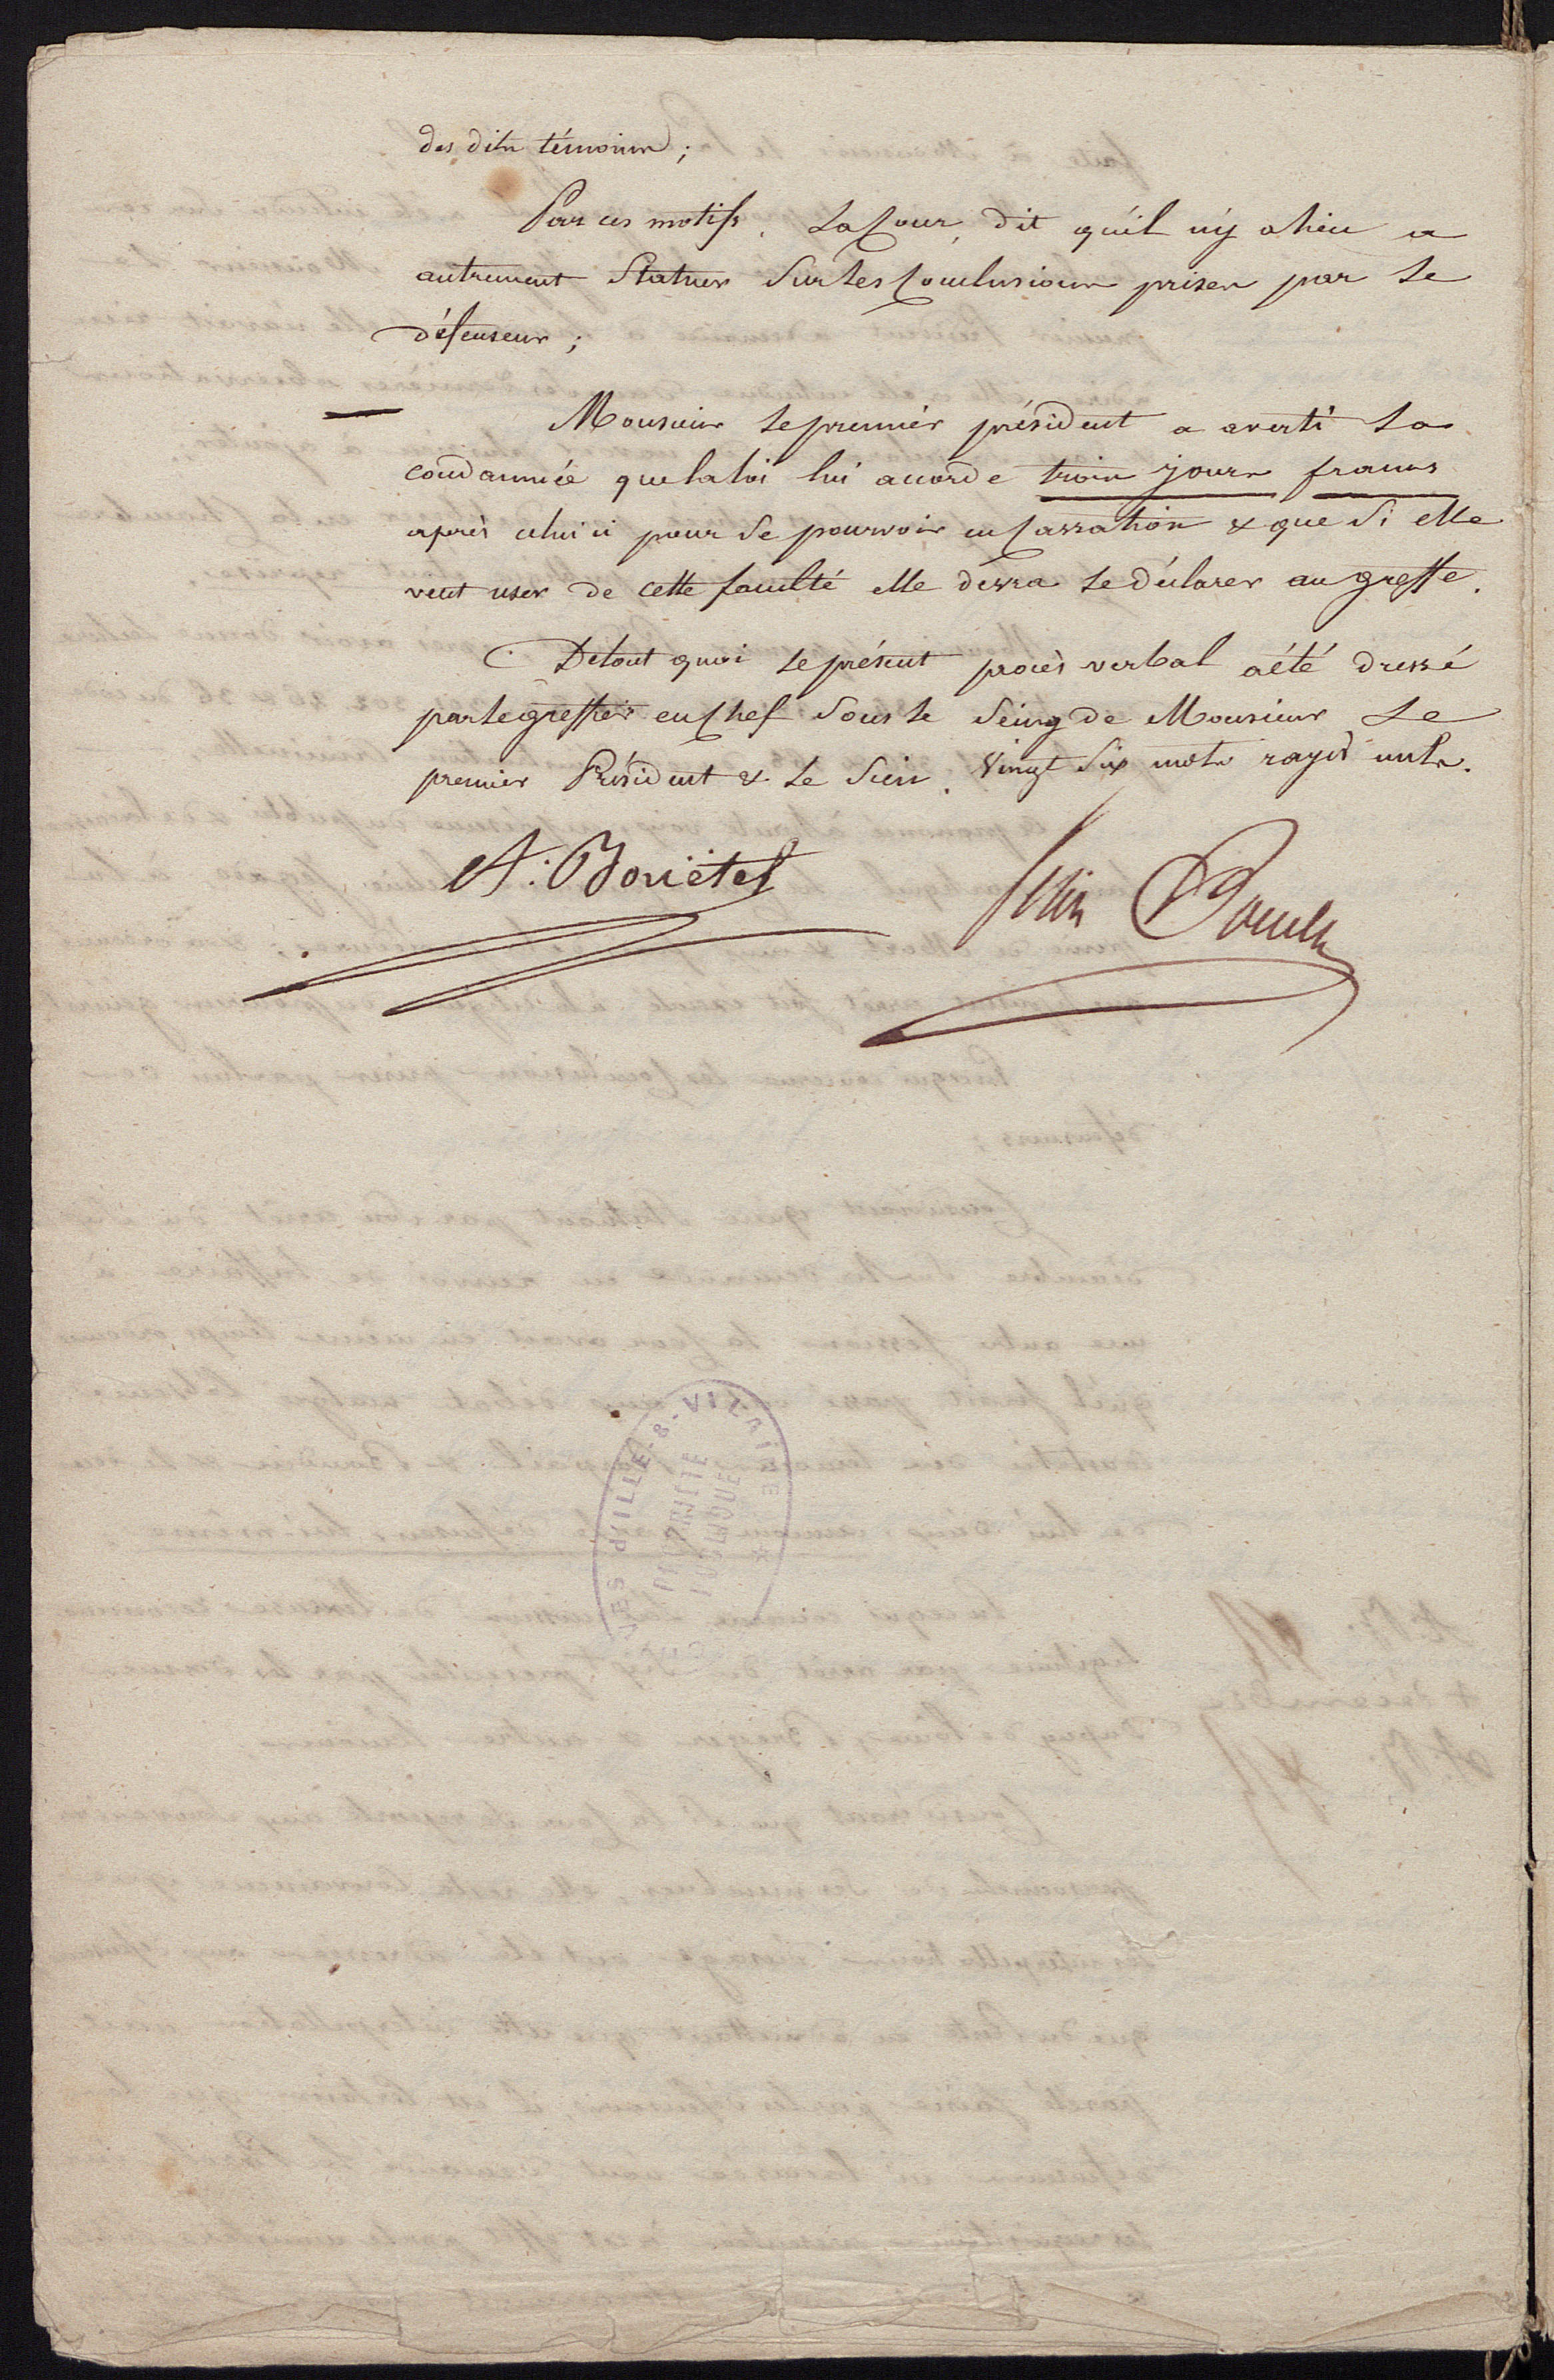 des dits témoins;
Par ces motifs. La Cour, dit qu'il n'y a lieu a
autrement Statuer Sur les Conclusions prises par le
défenseur;
Monsieur le premier président a averti la
condamnée que la loi lui accorde trois jours francs
après celui ci pour Se pourvoir en Cassation & que Si elle
veut user de cette faculté elle devra le déclarer au greffe.
De tout quoi le présent procès verbal a été dressé
par le greffier en Chef Sous le Seing de Monsieur Le
premier Président & le Sien. Vingt Six mots rayés nuls.
VES D'ILLE-&-VILAINE